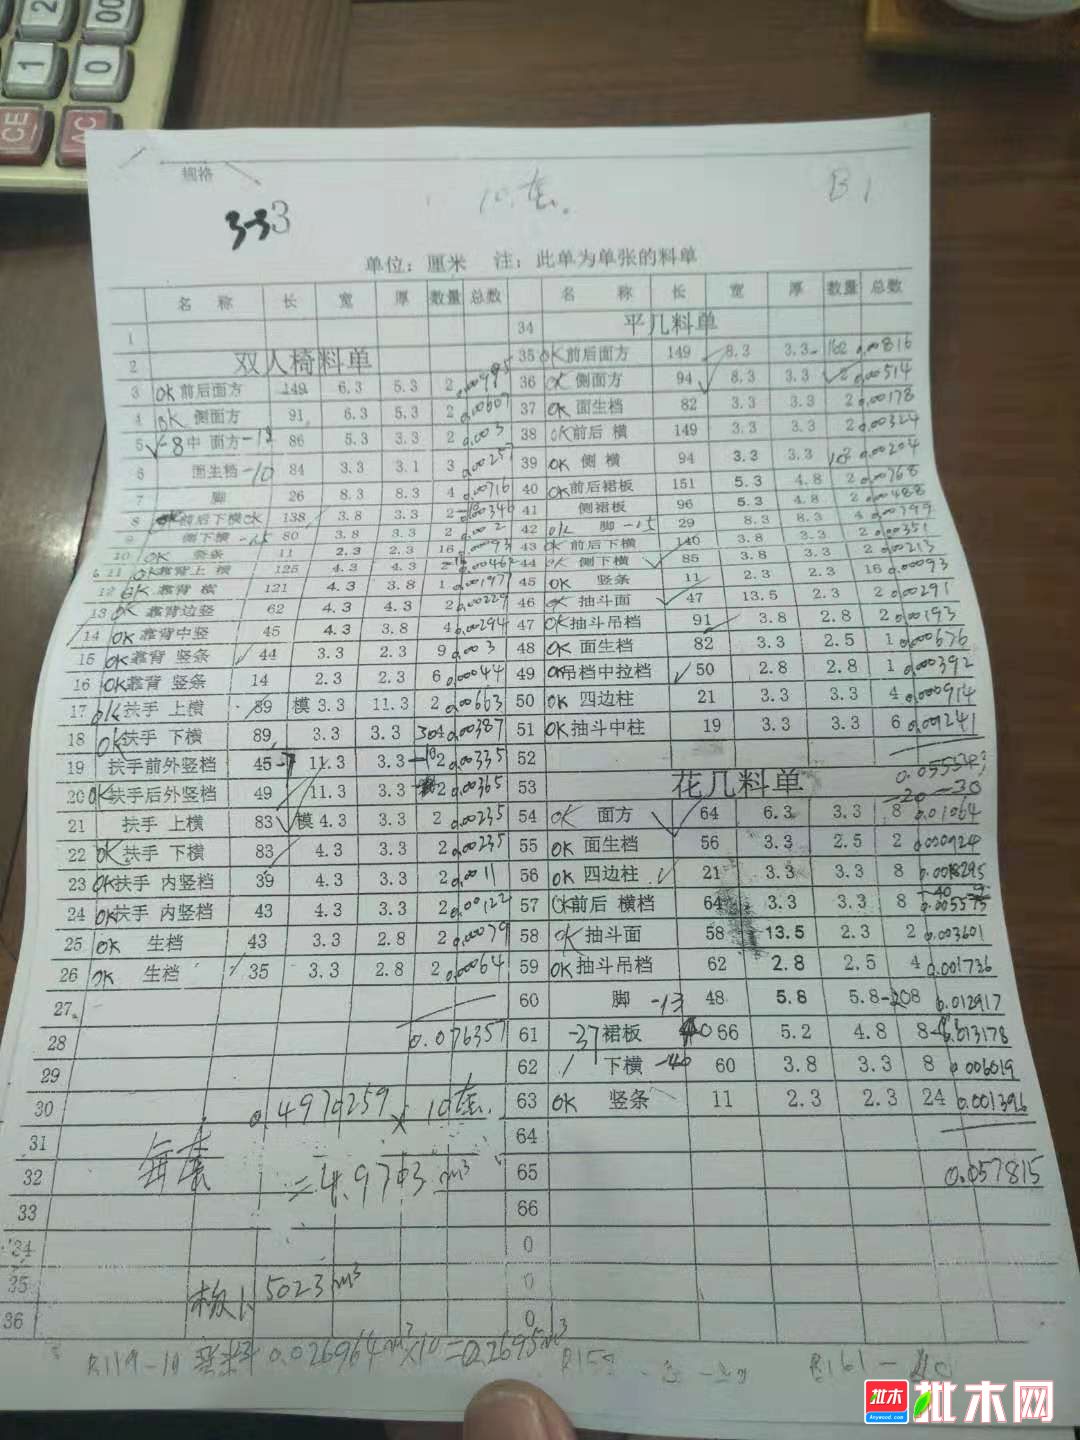 2 00
1 0
CE AC
规格
3-33 10套. B1
单位：厘米 注：此单为单张的料单
名 称 长 宽 厚 数量 总数
1
2 双人椅料单
3 OK前后面方 149 6.3 5.3 2
4 OK 侧面方 91 6.3 5.3 2 0.00607
5 中 面方 86 5.3 3.3 2 0.003
6 面生档-10 84 3.3 3.1 3 0.00257
7 脚 26 8.3 8.3 4 0.00716
8 前后下横OK 138 3.8 3.3 2 0.00346
9 侧下横-15 80 3.8 3.3 2 0.002
10 OK 竖条 11 2.3 2.3 16 0.00093
11 OK靠背上 横 125 4.3 4.3 2 0.00462
12 OK 靠背 横 121 4.3 3.8 1 0.00197
13 OK 靠背边竖 62 4.3 4.3 2 0.00229
14 OK 靠背中竖 45 4.3 3.8 4 0.00294
15 OK靠背 竖条 44 3.3 2.3 9 0.003
16 OK靠背 竖条 14 2.3 2.3 6 0.00044
17 OK扶手 上横 89 模 3.3 11.3 2 0.00663
18 OK扶手 下横 89 3.3 3.3 0.00387
19 扶手前外竖档 45 11.3 3.3 2 0.00335
20 OK扶手后外竖档 49 11.3 3.3 2 0.00365
21 扶手 上横 83 模 4.3 3.3 2 0.00235
22 OK扶手 下横 83 4.3 3.3 2 0.00235
23 OK扶手 内竖档 39 4.3 3.3 2 0.0011
24 OK扶手 内竖档 43 4.3 3.3 2 0.00122
25 OK 生档 43 3.3 2.8 2 0.00079
26 OK 生档 35 3.3 2.8 2 0.00064
27
28 0.076357
29
30 0.4970259 × 10套.
31
32 每套 =4.9703m³
33
34
35
36 板1.5023m³
名 称 长 宽 厚 数量 总数
34 平几料单
35 OK前后面方 149 8.3 3.3 2 0.00816
36 OK 侧面方 94 8.3 3.3 2 0.00514
37 OK 面生档 82 3.3 3.3 2 0.00178
38 OK前后 横 149 3.3 3.3 2 0.00324
39 OK 侧 横 94 3.3 3.3 0.00204
40 OK前后裙板 151 5.3 4.8 2 0.00768
41 侧裙板 96 5.3 4.8 2 0.00488
42 OK 脚-15 29 8.3 8.3 4 0.00799
43 OK 前后下横 140 3.8 3.3 2 0.00351
44 OK 侧下横 85 3.8 3.3 2 0.00213
45 OK 竖条 11 2.3 2.3 16 0.00093
46 OK 抽斗面 47 13.5 2.3 2 0.00291
47 OK抽斗吊档 91 3.8 2.8 2 0.00193
48 OK 面生档 82 3.3 2.5 1 0.000676
49 OK吊档中拉档 50 2.8 2.8 1 0.000392
50 OK 四边柱 21 3.3 3.3 4 0.000914
51 OK抽斗中柱 19 3.3 3.3 6 0.001241
52
53 花几料单
54 OK 面方 64 6.3 3.3 8 0.01064
55 OK 面生档 56 3.3 2.5 2 0.000924
56 OK 四边柱 21 3.3 3.3 8 0.0018295
57 OK前后 横档 64 3.3 3.3 8 0.005575
58 OK 抽斗面 58 13.5 2.3 2 0.003601
59 OK抽斗吊档 62 2.8 2.5 4 0.001736
60 脚 -13 48 5.8 5.8 8 0.012917
61 -37 裙板 66 5.2 4.8 8 0.013178
62 下横 -40 60 3.8 3.3 8 0.006019
63 OK 竖条 11 2.3 2.3 24 0.001396
64
65 0.057815
66
0
0
0
B119-10 0.026964m³×10=0.2695m³ B161-
批木网
Anywood.com
批木网